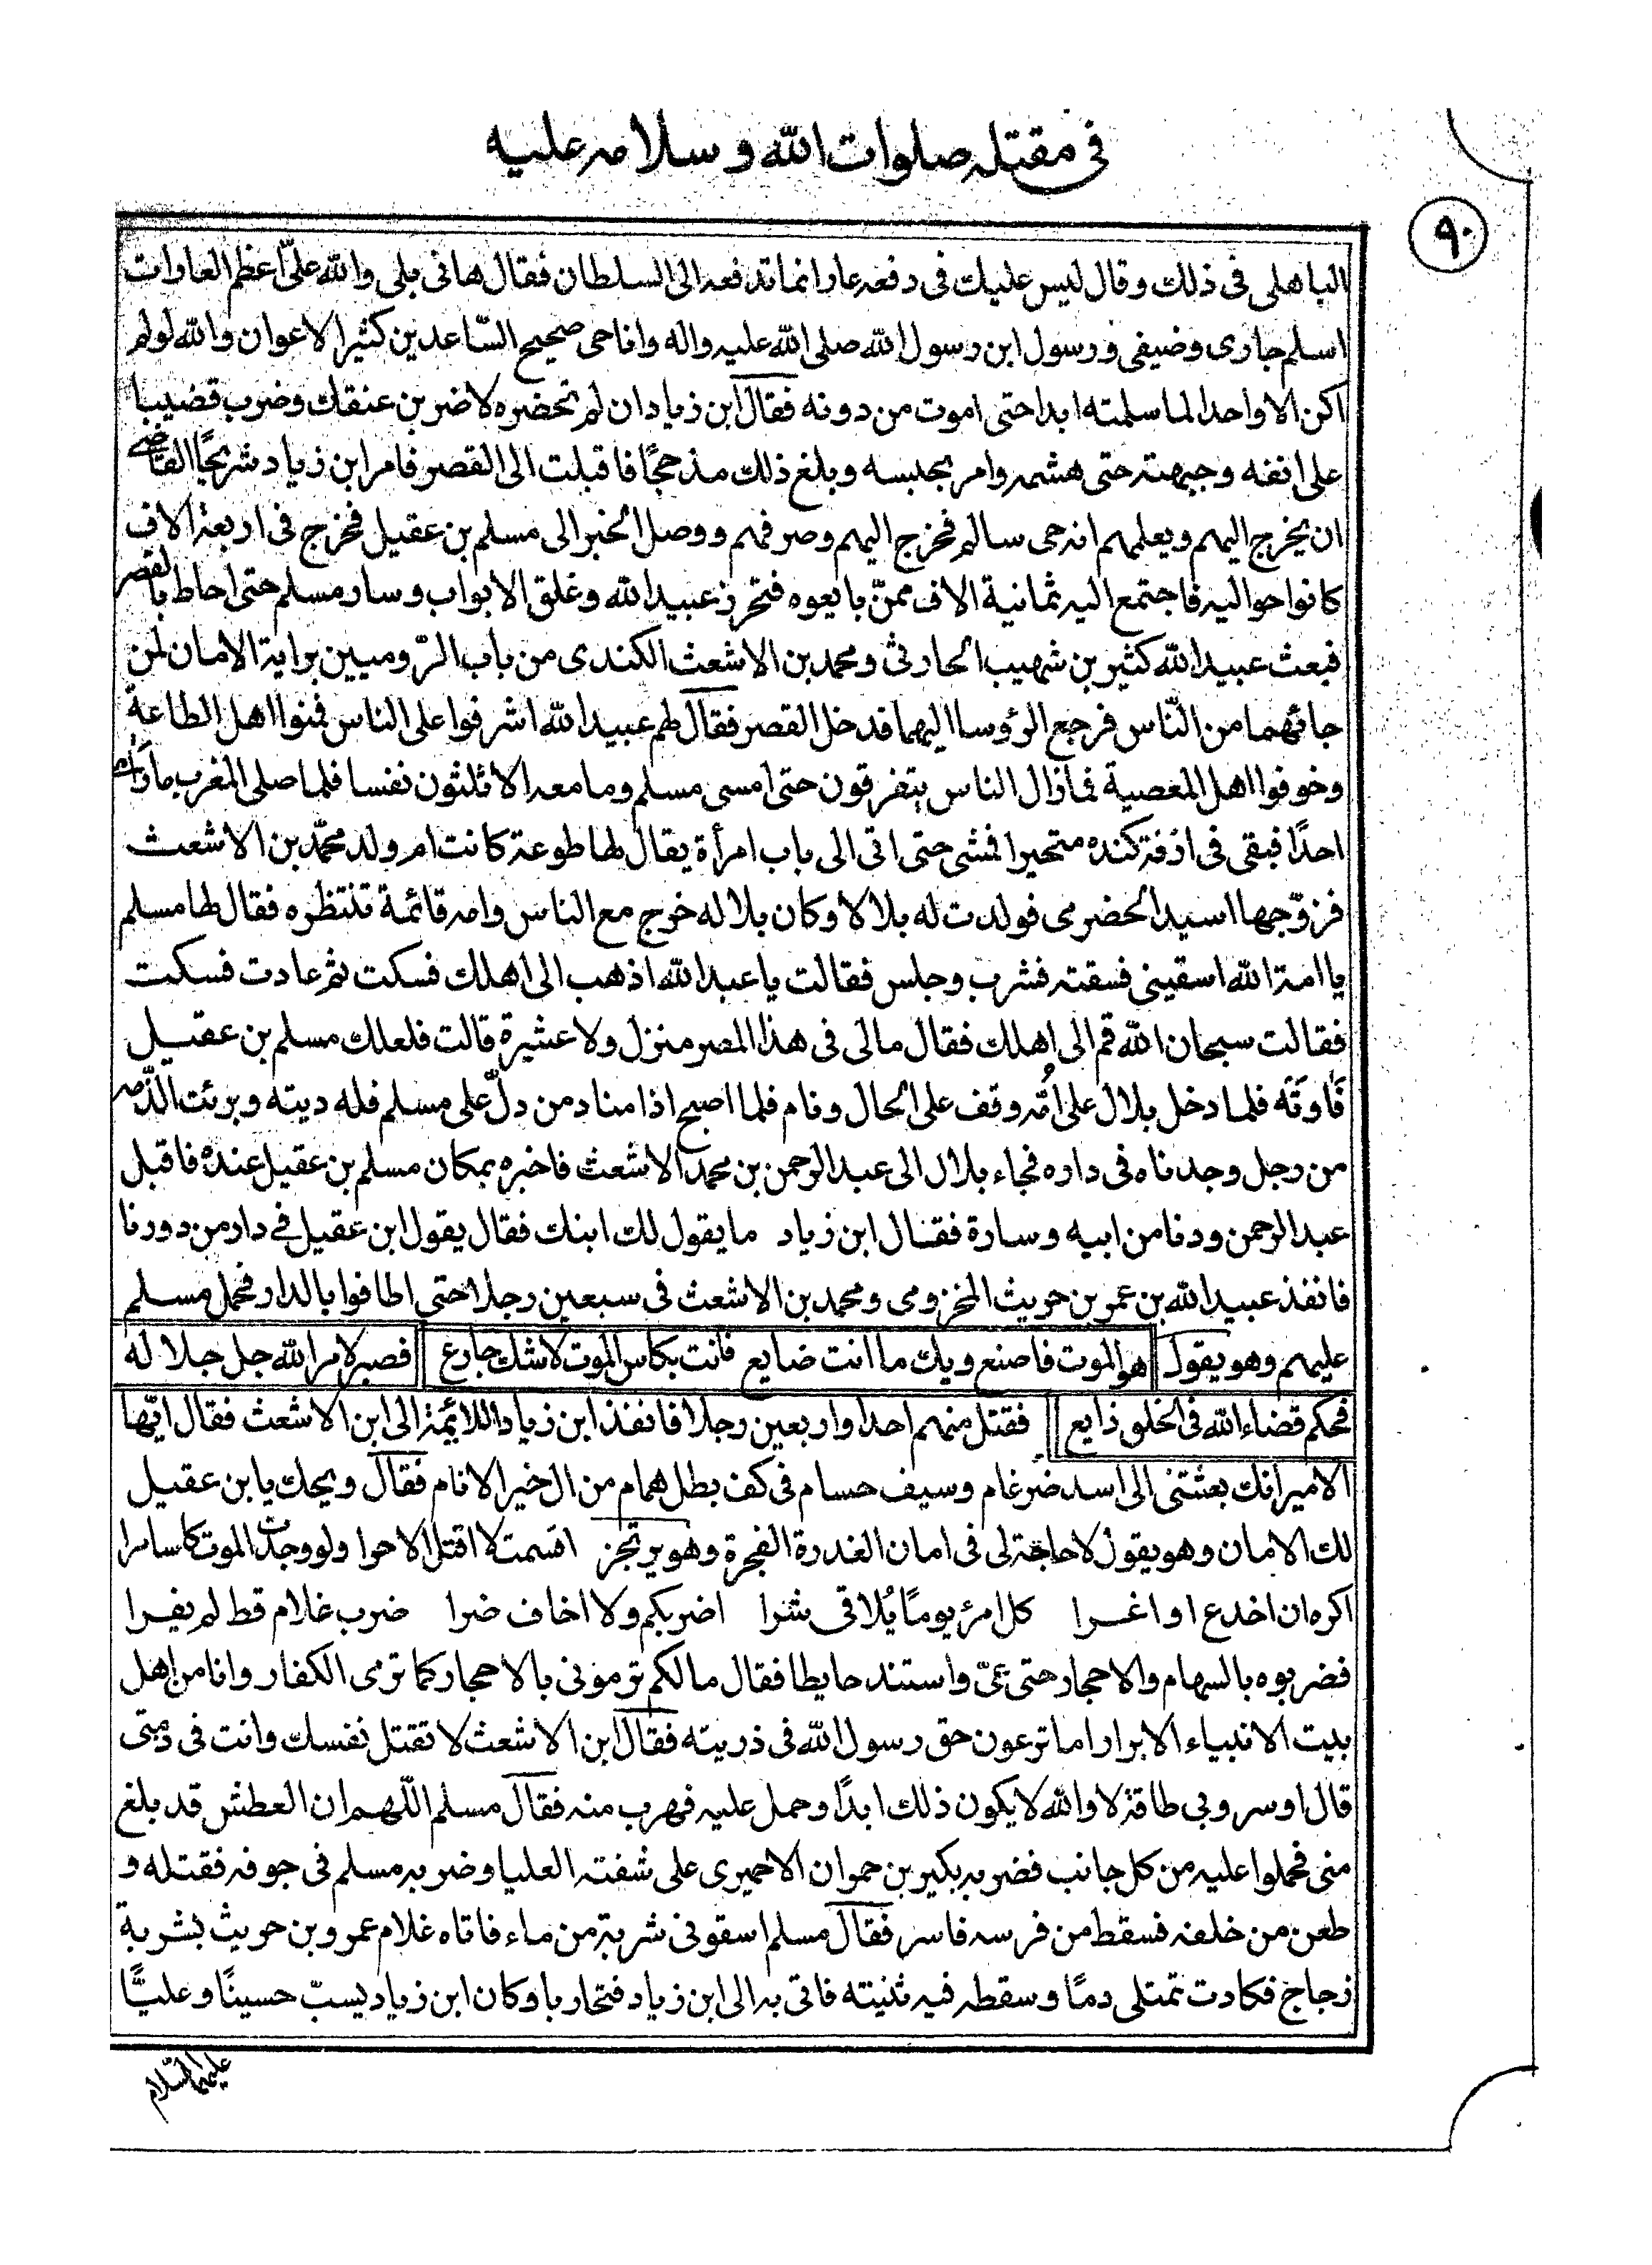 في مقتله صلوات الله وسلامه عليه
٩٠
الباهلى فى ذلك وقال ليس عليك فى دفعه عار انما تدفعه الى السلطان فقال هانى بلى والله علىّ اعظم العار ات
اسلم جارى وضيفى ورسول ابن رسول الله صلى الله عليه واله وانا حى صحيح السّاعدين كثير الاعوان والله لو لم
اكن الا واحدا لما سلمته ابدا حتى اموت من دونه فقال ابن زياد ان لم تحضره لاضربن عنقك وضرب قضيبا
على انفه وجبهته حتى هشمه وامر بحبسه وبلغ ذلك مذحجًا فاقبلت الى القصر فامر ابن زياد شريحًا القاضى
ان يخرج اليهم ويعلمهم انه حى سالم فخرج اليهم وصرفهم ووصل الخبر الى مسلم بن عقيل فخرج فى اربعة الاف
كانوا حواليه فاجتمع اليه ثمانية الاف ممّن بايعوه فتحرز عبيد الله وغلق الابواب وسار مسلم حتى احاط بالقصر
فبعث عبيد الله كثير بن شهيب الحارثى ومحمد بن الاشعث الكندى من باب الرّوميين براية الامان لمن
جائهما من النّاس فرجع الرؤوسا اليهما فدخل القصر فقال لهم عبيد الله اشرفوا على الناس فمنوا اهل الطاعة
وخوفوا اهل المعصية فما زال الناس يتفرقون حتى امسى مسلم وما معه الا ثلثون نفسا فلما صلى المغرب ما رَاى
احدًا فبقى فى ازقة كنده متحيرا فمشى حتى اتى الى باب امرأة يقال لها طوعة كانت ام ولد محمّد بن الاشعث
فزوّجها اسيد الحضرمى فولدت له بلالا وكان بلاله خرج مع الناس وامه قائمة تنتظره فقال لها مسلم
يا امة الله اسقينى فسقته فشرب وجلس فقالت يا عبد الله اذهب الى اهلك فسكت ثم عادت فسكت
فقالت سبحان الله قم الى اهلك فقال مالى فى هذا المصر منزل ولا عشيرة قالت فلعلك مسلم بن عقيل
فَاوَتَه فلما دخل بلال على امّه وقف على الحال ونام فلما اصبح اذا مناد من دلّ على مسلم فله ديته وبرئت الذّمه
من رجل وجدناه فى داره فجاء بلال الى عبد الرحمن بن محمد الاشعث فاخبره بمكان مسلم بن عقيل عنده فاقبل
عبد الرحمن ودنا من ابيه وسارة فقال ابن زياد ما يقول لك ابنك فقال يقول ابن عقيل فى دار من دورنا
فانفذ عبيد الله بن عمر بن حريث المخزومى ومحمد بن الاشعث فى سبعين رجلا حتى اطافوا بالدار فحمل مسلم
عليهم وهو يقول هو الموت فاصنع ويك ما انت صايع فانت بكاس الموت لا شك جارع فصبر لامر الله جل جلاله
فحكم قضاء الله فى الخلق ذايع فقتل منهم احدا واربعين رجلا فانفذ ابن زياد اللايمة الى ابن الاشعث فقال ايّها
الامير انك بعثتنى الى اسد ضرغام وسيف حسام فى كف بطل همام من ال خير الانام فقال ويحك يا بن عقيل
لك الامان وهو يقول لا حاجة لى فى امان الغدرة الفجرة وهو يرتجز اقسمت لا اقتل الا حرا ولو وجدت الموت كاسا مرا
اكره ان اخدع او اغرا كل امرئ يومًا يُلاقى شرا اضربكم ولا اخاف ضرا ضرب غلام قط لم يفرا
فضربوه بالسهام والاحجار حتى عىّ واستند حايطا فقال ما لكم ترمونى بالاحجار كما ترمى الكفار وانا من اهل
بيت الانبياء الابرار اما ترعون حق رسول الله فى ذريته فقال ابن الاشعث لا تقتل نفسك وانت فى ذمتى
قال اوسر وبى طاقة لا والله لا يكون ذلك ابدًا وحمل عليه فهرب منه فقال مسلم اللّهم ان العطش قد بلغ
منى فحملوا عليه من كل جانب فضربه بكير بن حمران الاحميرى على شفته العليا وضربه مسلم فى جوفه فقتله و
طعن من خلفه فسقط من فرسه فاسر فقال مسلم اسقونى شربة من ماء فاتاه غلام عمرو بن حريث بشربة
زجاج فكادت تمتلى دمًا وسقطه فيه ثنيته فاتى به الى ابن زياد فتحاربا وكان ابن زياد يسبّ حسينًا وعليًّا
عليهما السّلام